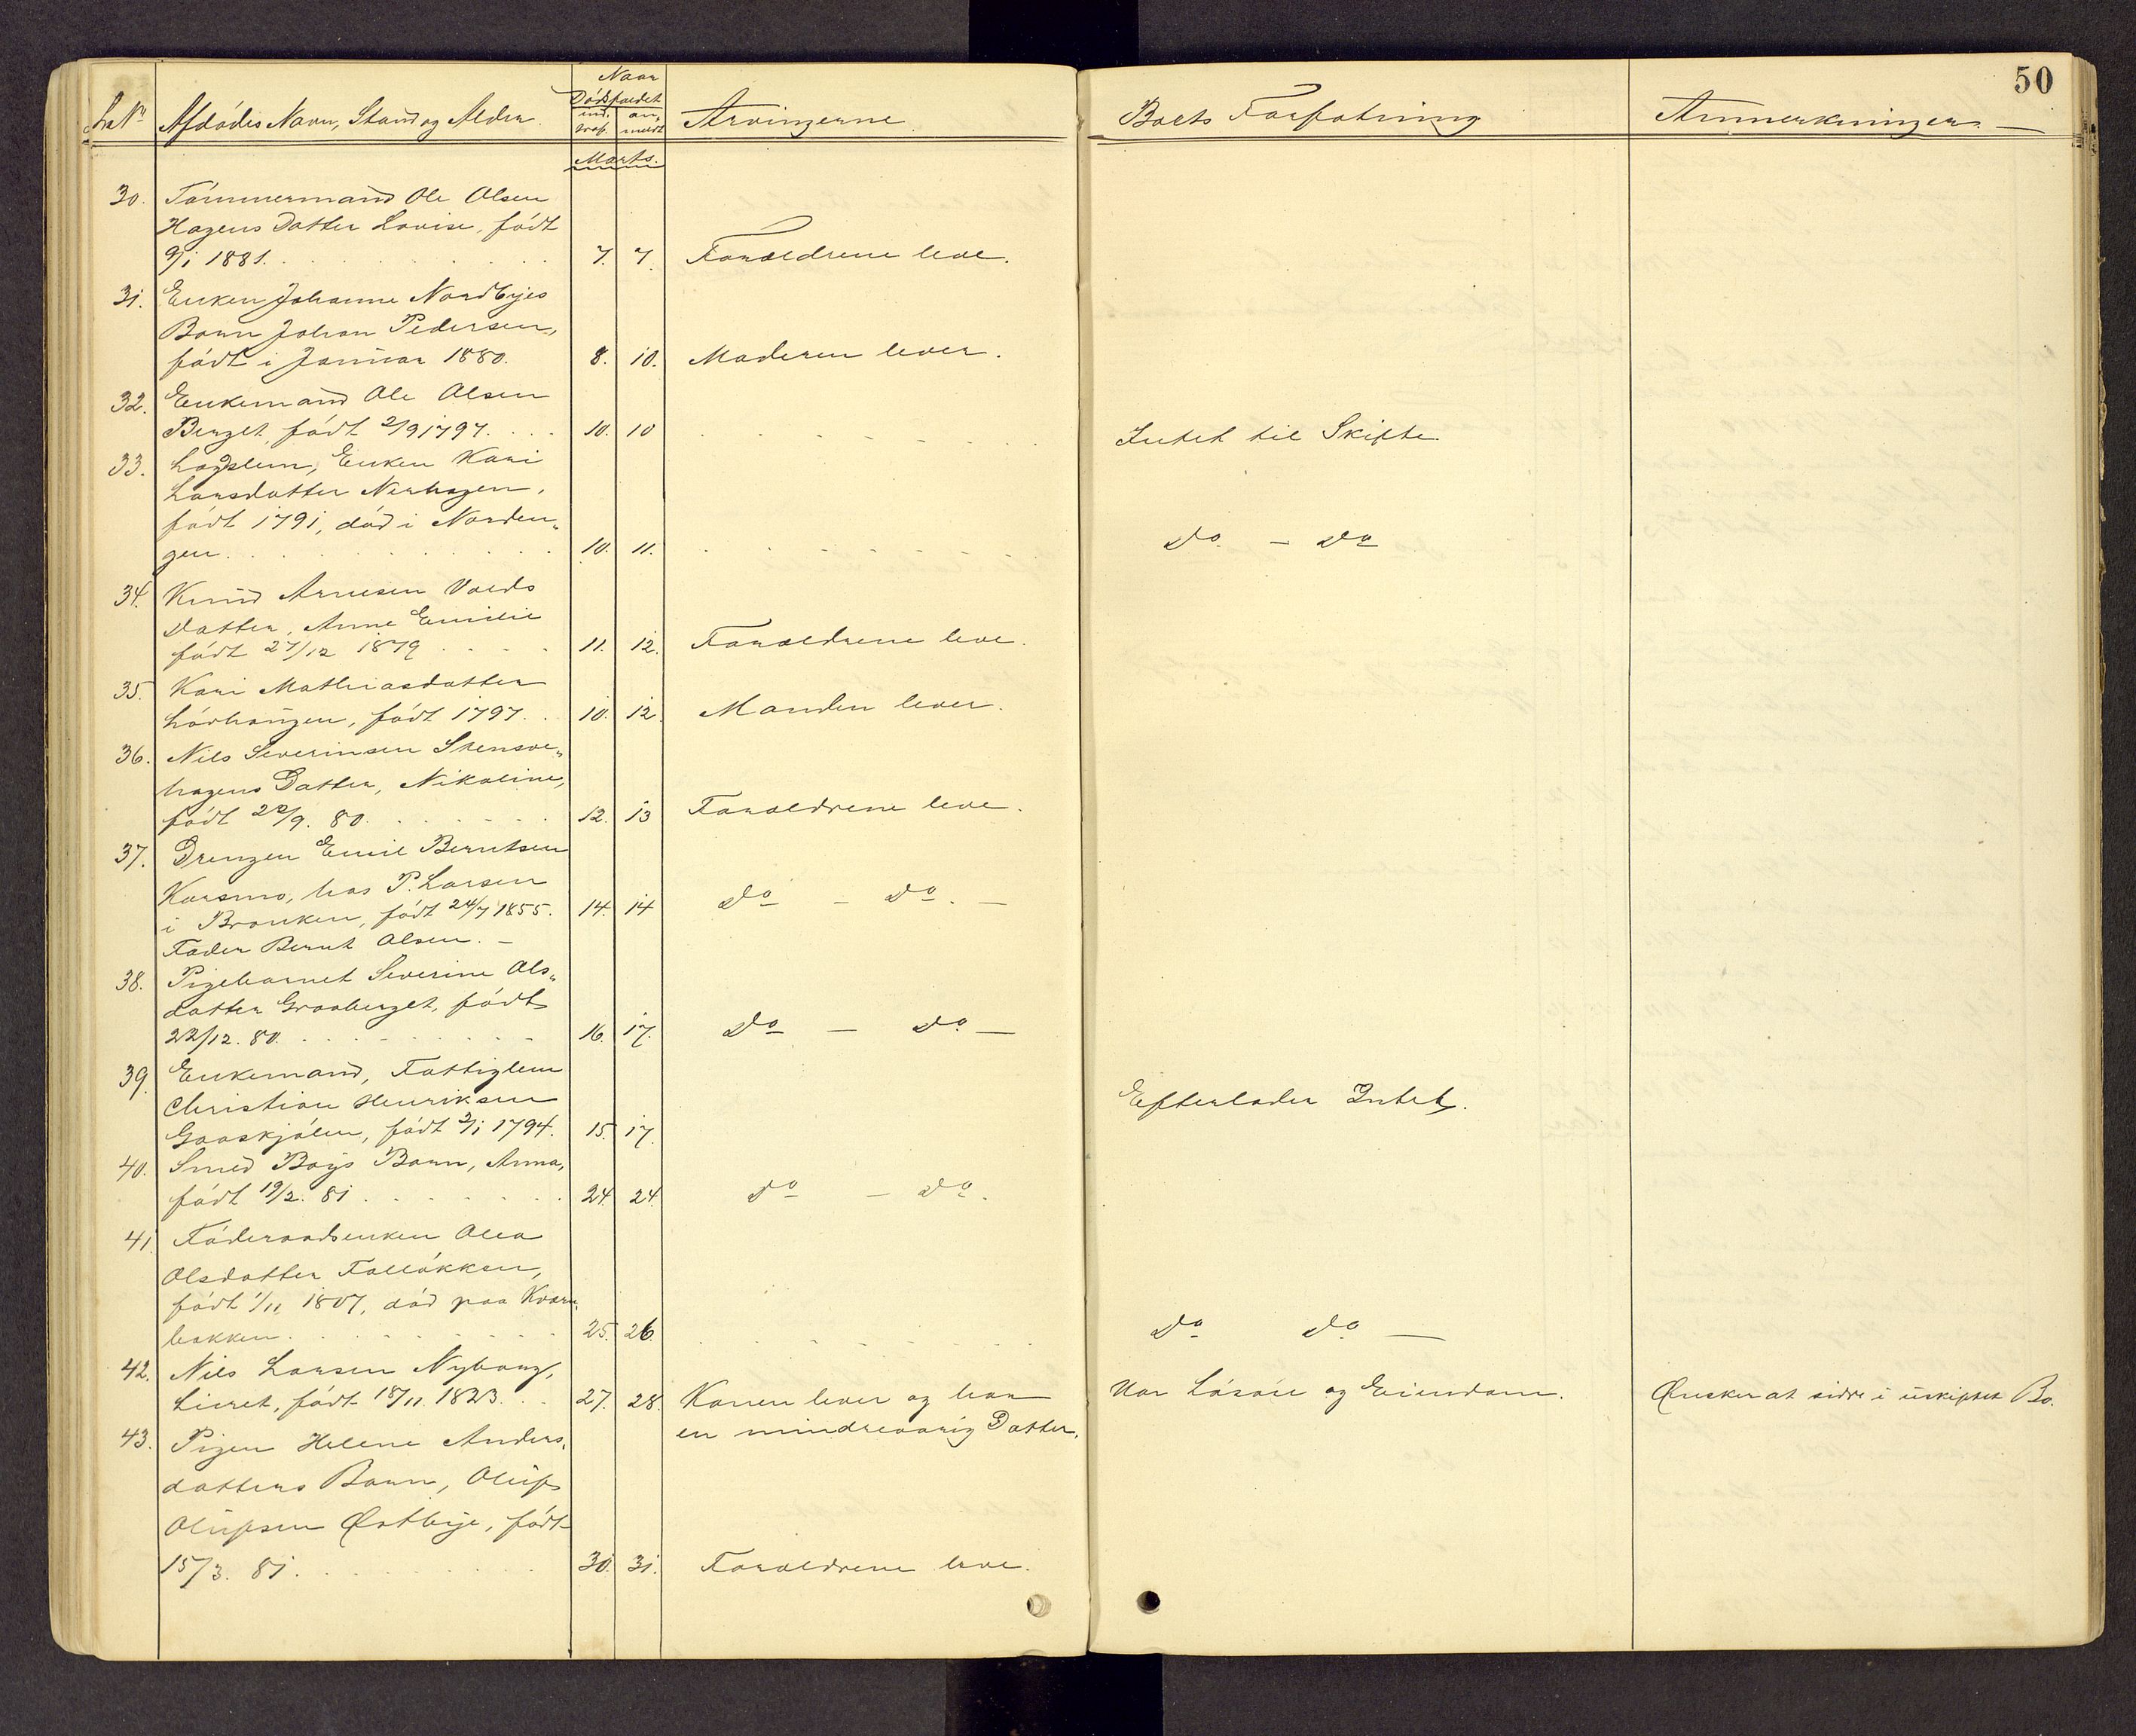 50
Naar
Dödsfaldet
ind- traf. an- meldt
Lb No Afdödes Navn, Stand og Alder. Arvingerne. Boets Forfatning Anmerkninger. —
Marts.
30. Tömmermand Ole Olsen
Hagens Datter Lovise, född
9/1 1881. 7. 7. Forældrene leve.
31. Enken Johanne Nordbyes
Barn Johan Pedersen,
född i Januar 1880. 8. 10. Moderen lever.
32. Enkemand Ole Olsen
Berget, född 2/9 1797. 10. 10 Intet til Skifte.
33. Lægslem, Enken Kari
Larsdatter Nerhagen,
född 1791, död i Norden-
gen. 10. 11. Do — Do
34. Knud Arnesen Volds
Datter, Anne Emilie
född 27/12 1879 11. 12. Forældrene leve.
35. Kari Mathiasdatter
Lörhaugen, född 1797. 10. 12. Manden lever.
36. Nils Severinsen Stensve-
hagens Datter, Nikoline,
född 22/9. 80. 12. 13 Forældrene leve.
37. Drengen Emil Berntsen
Korsmo, hos P. Larsen
i Bronken, född 24/7 1855. 14. 14 Do — Do. —
Fader Bernt Olsen. —
38. Pigebarnet Severine Ols-
datter Graaberget, född
22/12. 80. 16. 17. Do — Do —
39. Enkemand, Fattiglem
Christian Henriksen
Gaaskjölen, född 2/1 1794. 15. 17. Efterlader Intet.
40. Smed Boys Barn, Anna,
född 19/2. 81 24. 24. Do — Do.
41. Föderaadsenken Olea
Olsdatter Fallökken,
född 1/11 1807, död paa Kvern-
bakken. 25. 26. Do Do —
42. Nils Larsen Nyborg,
Lieret, född 18/11 1823. 27. 28. Konen lever og har Har Lösöre og Eiendom. Önsker at sidde i uskiftet Bo.
en mindreaarig Datter.
43. Pigen Helene Anders-
datters Barn, Oluf
Olufsen Østbye, född
15/3. 81. 30. 31. Forældrene leve.